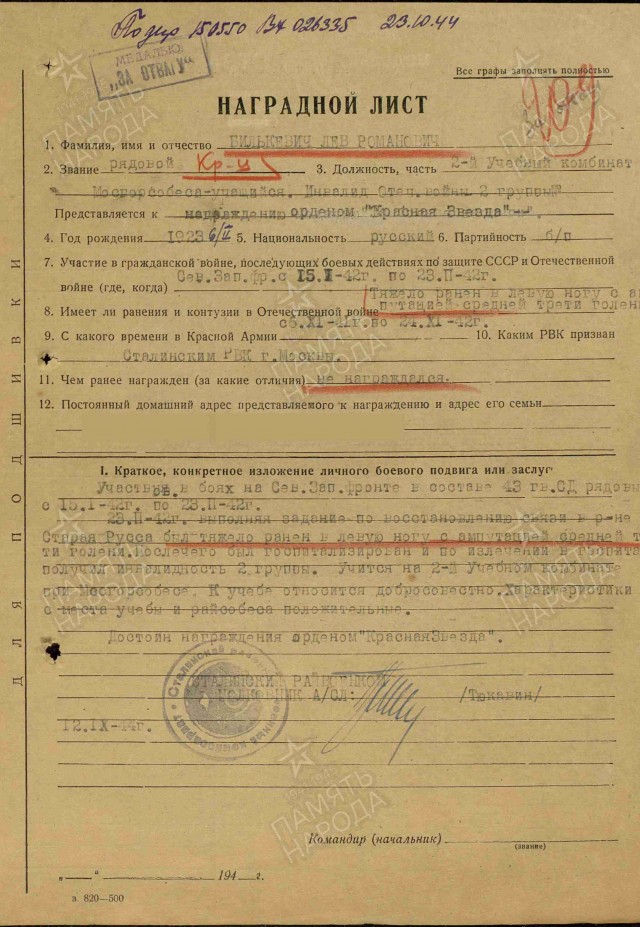 150550 ВХ 026335 23.10.44
МЕДАЛЬЮ
"ЗА ОТВАГУ"
Все графы заполнять полностью
НАГРАДНОЙ ЛИСТ
1. Фамилия, имя и отчество БИЛЬКЕВИЧ ЛЕВ РОМАНОВИЧ
2. Звание рядовой Кр-ц 3. Должность, часть 2-й Учебный комбинат
Мосгорсобеса-учащийся. Инвалид Отеч.войны 2 группы
Представляется к награждению орденом "Красная Звезда".
4. Год рождения 1923 6/II 5. Национальность русский 6. Партийность б/п
7. Участие в гражданской войне, последующих боевых действиях по защите СССР и Отечественной
войне (где, когда) Сев.Зап.фр.с 15.I-42г. по 23.П-42г.
Тяжело ранен в левую ногу с ам
8. Имеет ли ранения и контузии в Отечественной войне путацией средней трати голени
9. С какого времени в Красной Армии с 6.XI-41г.по 24.XI-42г. 10. Каким РВК призван
Сталинским РВК г.Москвы.
11. Чем ранее награжден (за какие отличия) не награждался.
12. Постоянный домашний адрес представляемого к награждению и адрес его семьи
I. Краткое, конкретное изложение личного боевого подвига или заслуг
Участвуя в боях на Сев.Зап.фронте в составе 43 гв.СД рядовы
с 15.I-42г. по 23.П-42г.
23.П-42г. выполняя задание по восстановлению связи в р-не
Старья Русса был тяжело ранен в левую ногу с ампутацией средней т
ти голени.Послечего был госпитализирован и по излечении в госпита
получил инвалидность 2 группы. Учится на 2-й Учебном комбинате
при Мосгорсобесе. К учебе относится добросовестно.Характеристики
с места учебы и райсобеса положительные.
Достоин награждения орденом"КраснаяЗвезда".
СТАЛИНСКИЙ РАЙВОЕНКОМ
ПОЛКОВНИК А/СЛ: /Тюкавин/
12.IX-44г.
Командир (начальник)
(звание)
„ “ 194 г.
з. 820—500
ДЛЯ ПОДШИВКИ
ПАМЯТЬ
НАРОДА